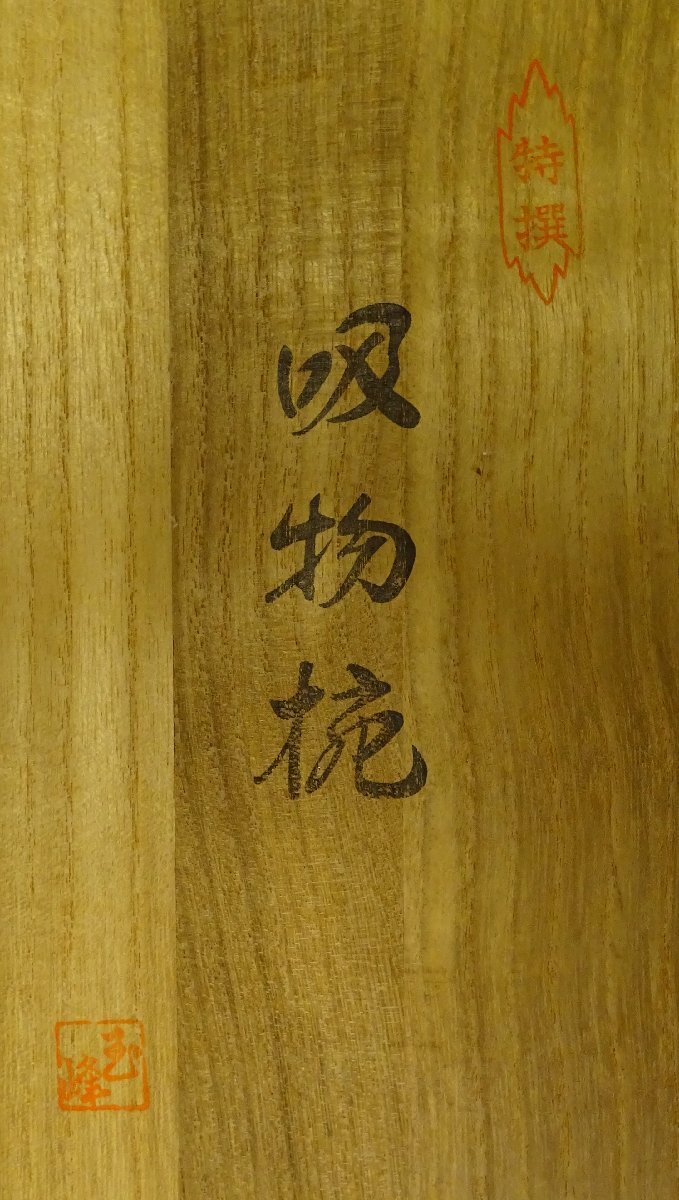 特撰
吸物椀
玉峰